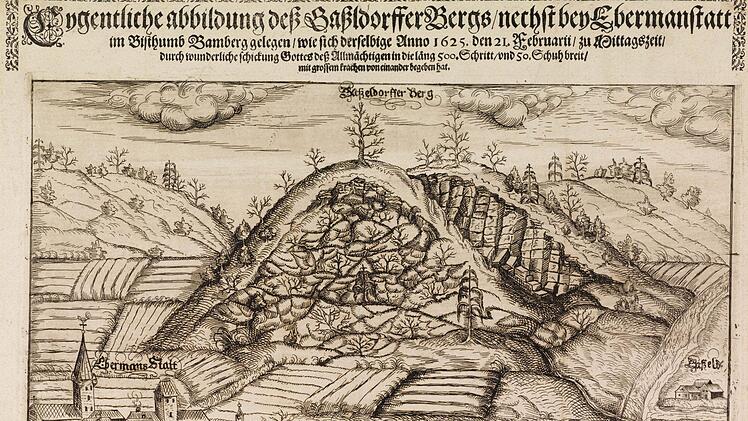 Eygentliche abbildung deß Gaßldorffer Bergs / nechst bey Ebermanstatt
im Bisthumb Bamberg gelegen / wie sich derselbige Anno 1625. den 21. Februarii / zu Mittagszeit /
durch wunderliche schickung Gottes deß Allmächtigen in die läng 500. Schritt / und 50. Schuh breit /
mit grossem krachen von einander begeben hat.
Gaßeldorffer Berg
Ebermans Statt